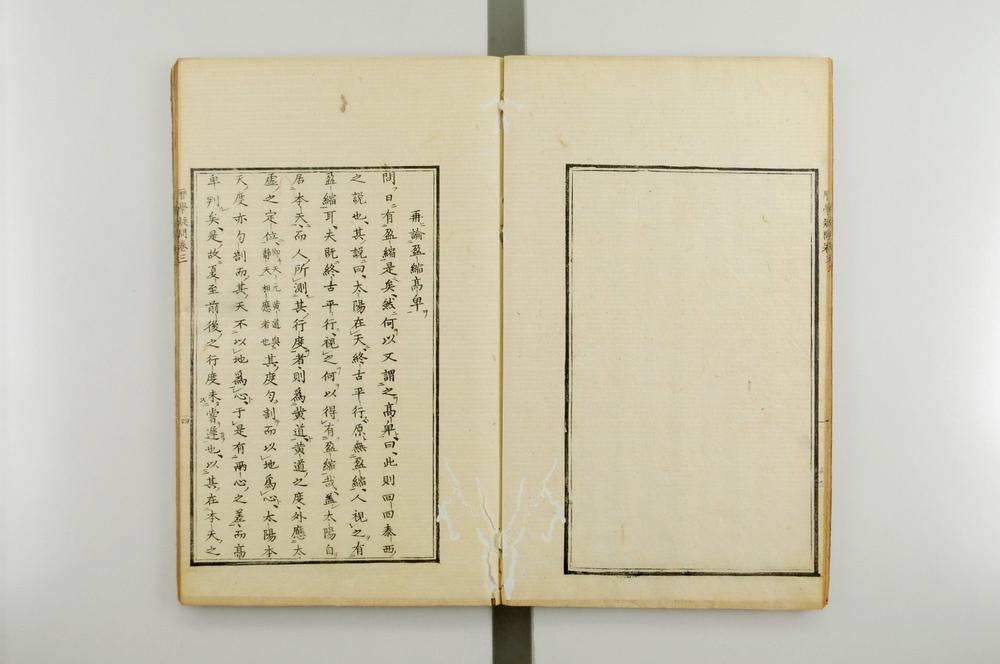 再論盈縮高卑
問日有盈縮是矣然何以又謂之高卑曰此則回回泰西
之說也其說曰太陽在天終古平行原無盈縮人視之有
盈縮耳夫既終古平行視之何以得有盈縮哉蓋太陽自
居本天而人所測其行度者則為黃道黃道之度外應太
虛之定位即天元黃道與靜天相應者也其度勻剖而以地為心太陽本
天度亦勻剖而其天不以地為心于是有兩心之差而高
卑判矣是故夏至前後之行度未嘗遲也以其在本天之
曆學疑問卷三
四